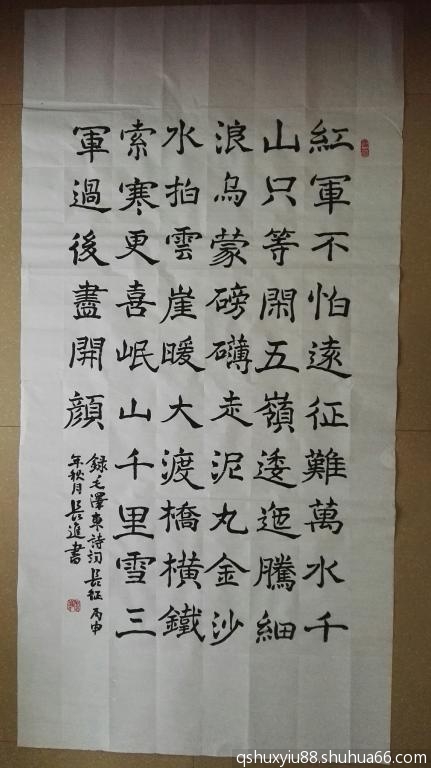 紅軍不怕遠征難萬水千
山只等閑五嶺逶迤騰細
浪烏蒙磅礴走泥丸金沙
水拍雲崖暖大渡橋橫鐵
索寒更喜岷山千里雪三
軍過後盡開顏
録毛澤東詩詞長征丙申
年秋月長進書
qshuxyiu88.shuhua66.com